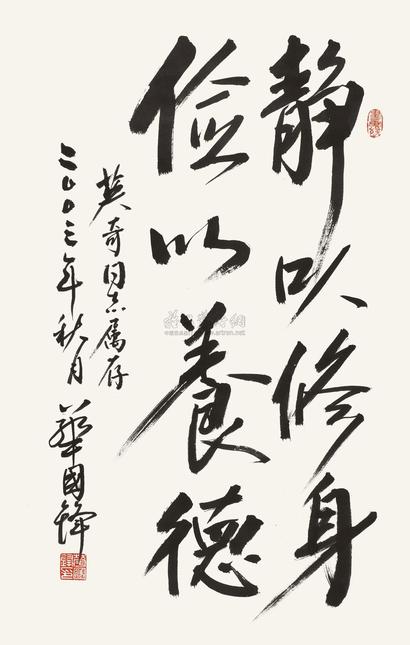 静以修身
俭以養德
英奇同志属存
二〇〇三年秋月
華國锋